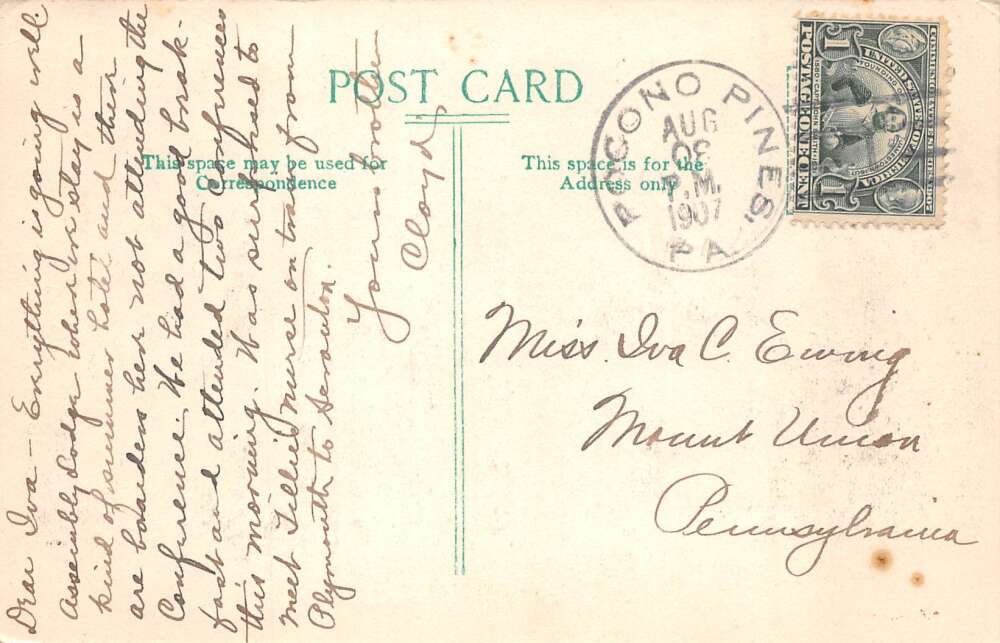 POST CARD
This space may be used for
Correspondence
This space is for the
Address only
POCONO PINES
AUG
P.M.
1907
PA
COMMEMORATIVE SERIES 1907
UNITED STATES OF AMERICA
FOUNDING OF
1580 CAPT JOHN SMITH 1631
POSTAGE ONE CENT
1
1
Dear Iva — Everything is going well
Assembly Lodge where we stay is a
kind of summer hotel and there
are boarders here not attending the
Conference. We had a good break-
fast and attended two conferences
this morning. Was surprised to
meet Tillie Nurse on train from
Plymouth to Scranton.
Your brother
Cloyd
Miss. Iva C. Ewing
Mount Union
Pennsylvania